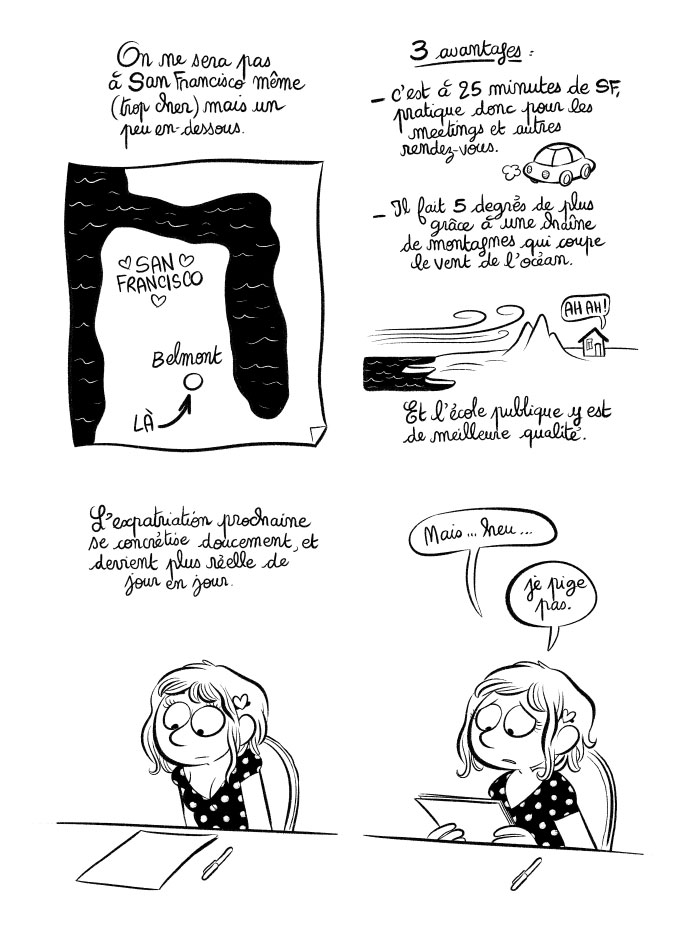 On ne sera pas
à San Francisco même
(trop cher) mais un
peu en-dessous.
SAN
FRANCISCO
Belmont
LÀ
3 avantages :
- c'est à 25 minutes de SF,
pratique donc pour les
meetings et autres
rendez-vous.
- Il fait 5 degrès de plus
grâce à une chaîne
de montagnes qui coupe
le vent de l'océan.
AH AH!
Et l'école publique y est
de meilleure qualité.
L'expatriation prochaine
se concrétise doucement, et
devient plus réelle de
jour en jour.
Mais... heu...
je pige
pas.